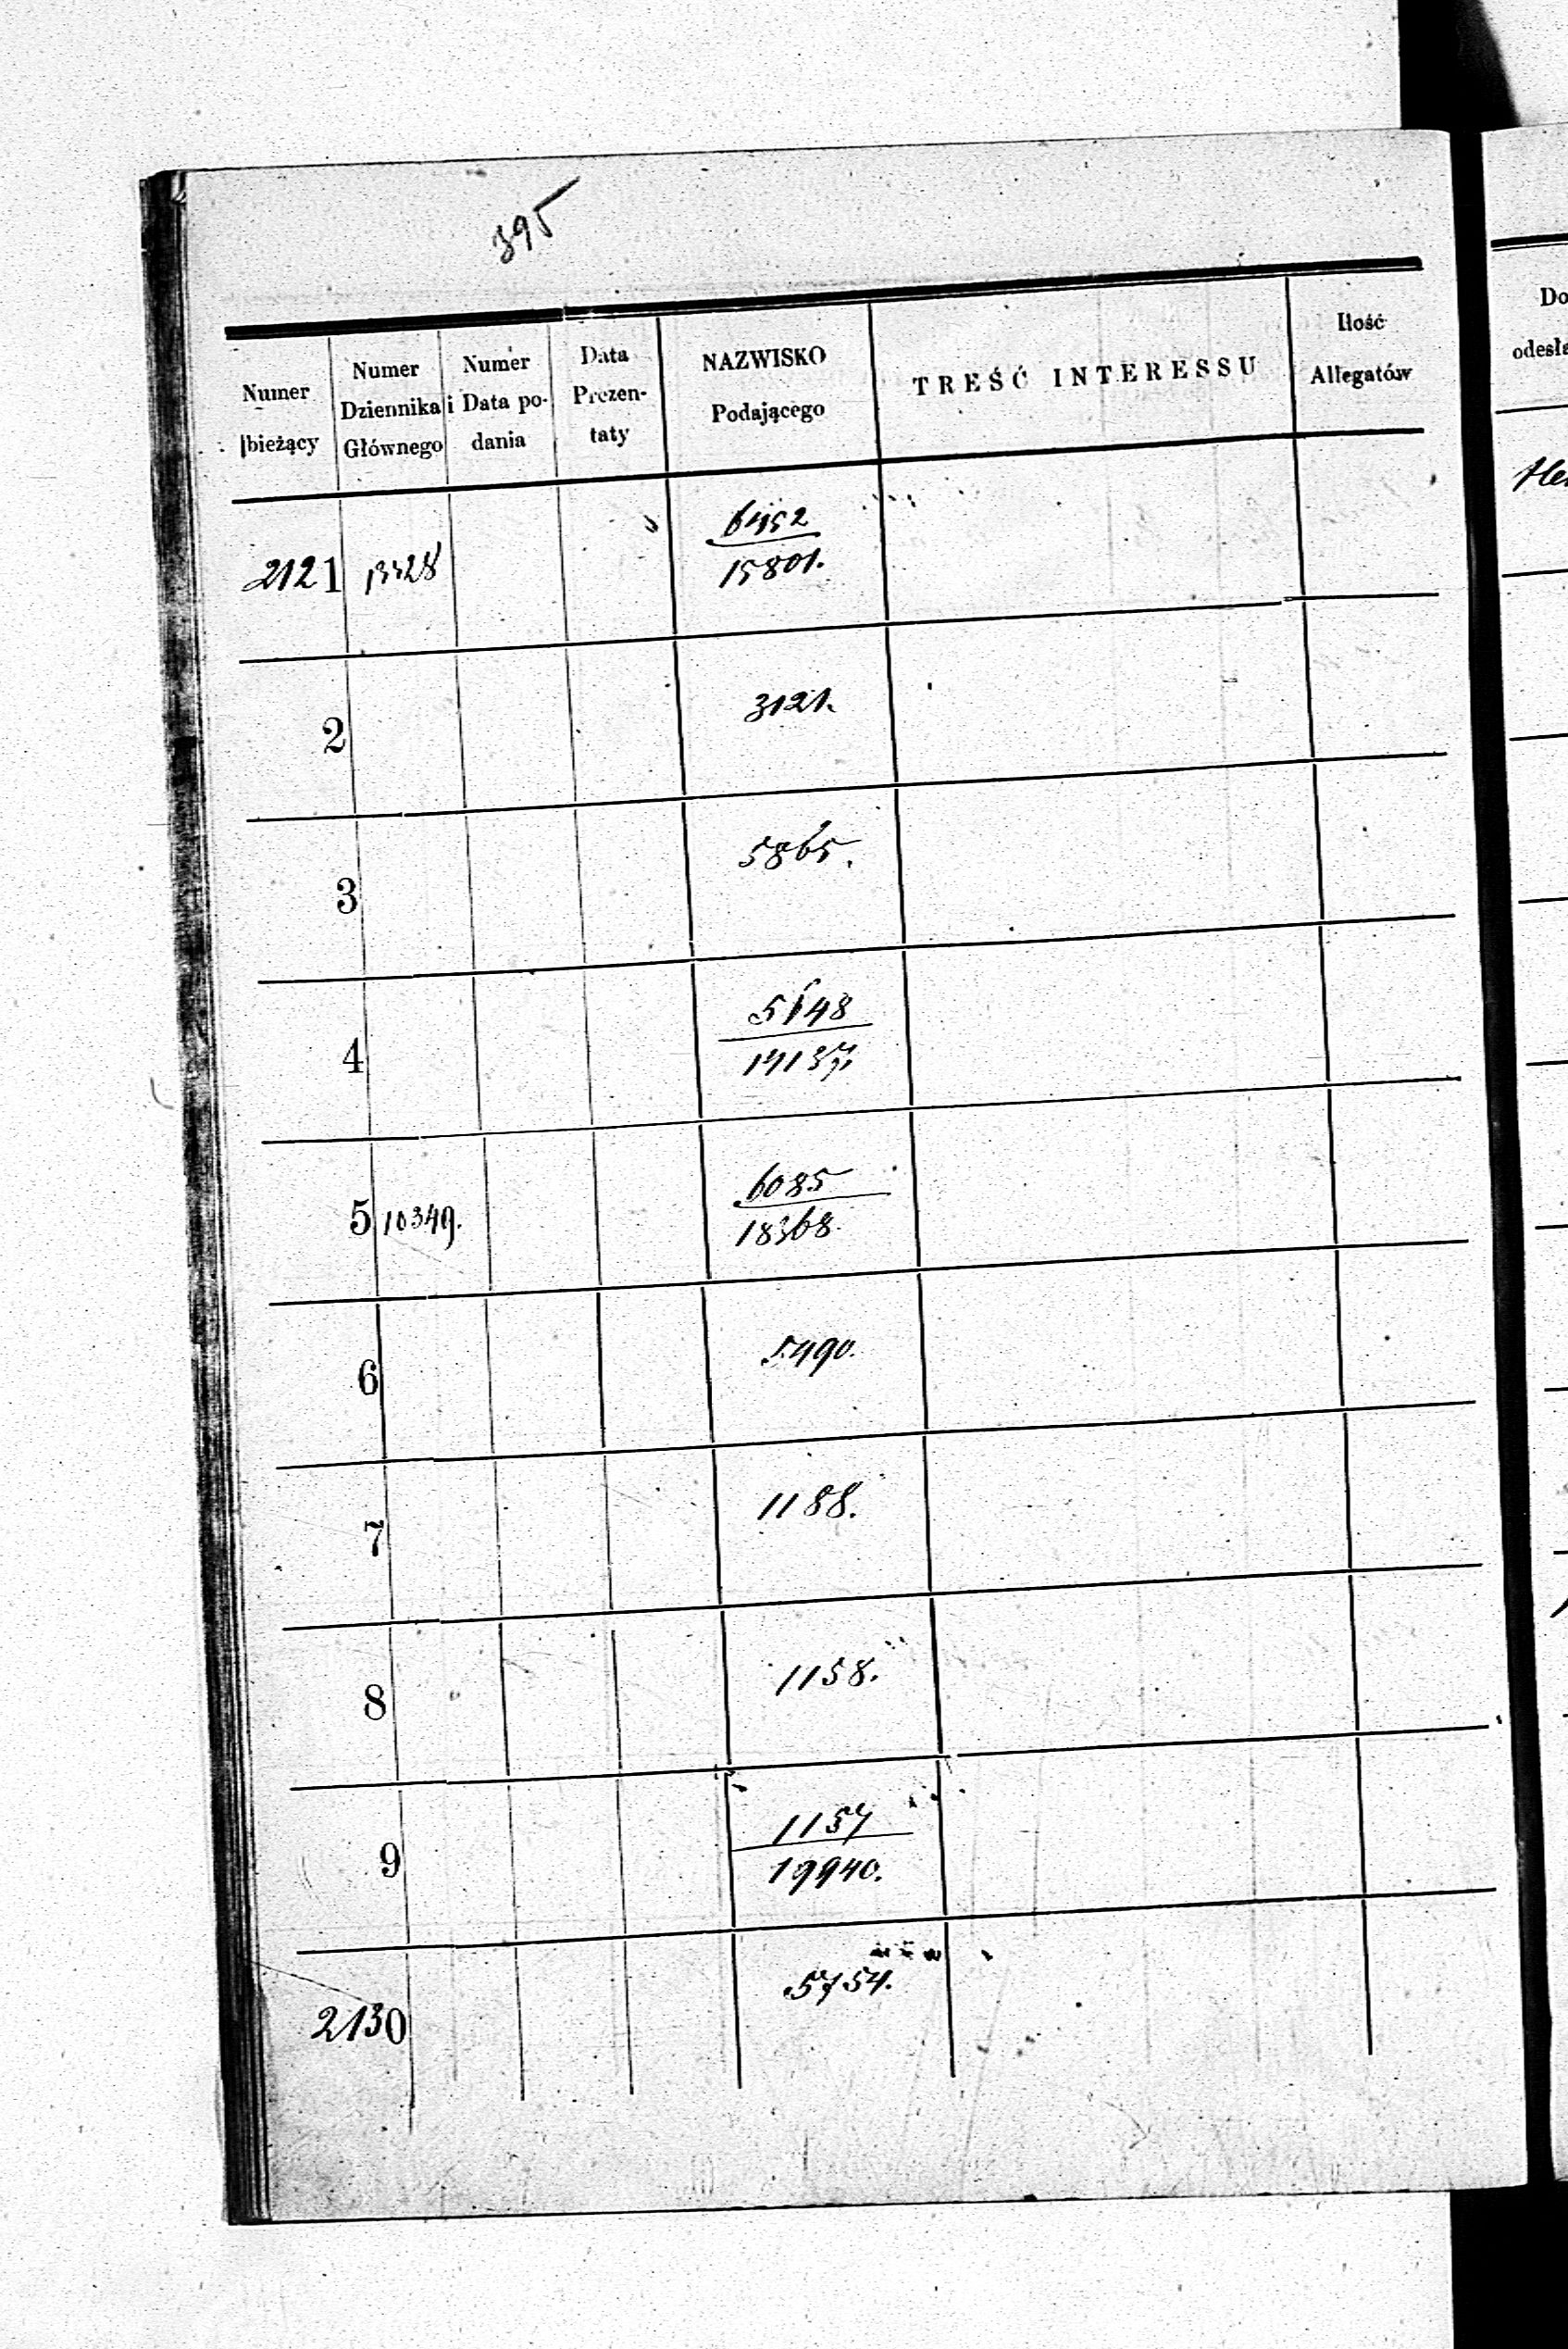 395
Numer bieżący
Numer Dziennika Głównego
Numer i Data podania
Data Prezentaty
NAZWISKO Podającego
TREŚĆ INTERESSU
Ilość Allegatów
2121
6452
15801.
2 3121.
3 5865.
4 5648
14137.
5 10349. 6085
18368.
6 5490.
7 1188.
8 1158.
9 1157
19940.
2130 5754.